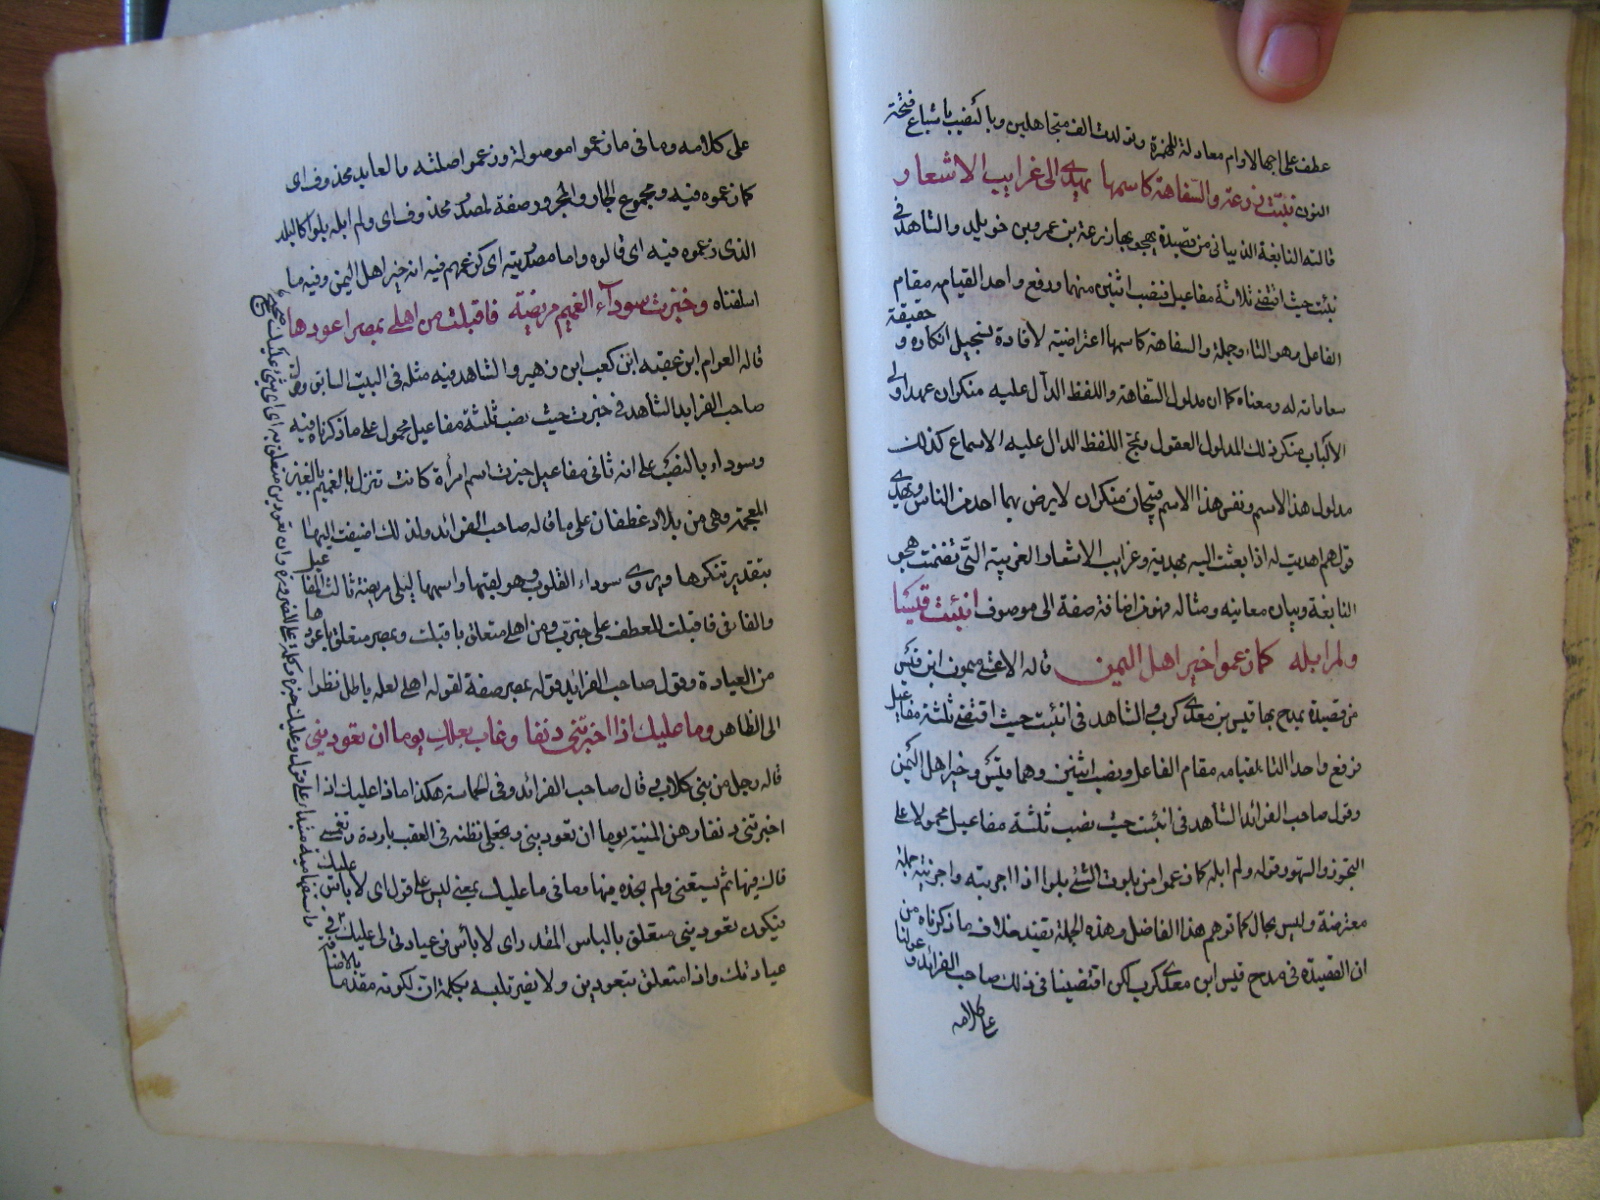 عطف على اجهالا وام معادلة للهمزة وتولدت الف متجاهلين وبالكنصب باشباع فتحة
النون نبئت زرعة والسفاهة كاسمها يهدى الى غرايب الاشعار
قالته النابغة الذبيانى من قصيدة يهجو بها زرعة بن عمرو بن خويلد والشاهد فى
نبئت حيث اقتضى ثلاثة مفاعيل فنصب اثنين منها ورفع واحد القيامه مقام
الفاعل وهو التاء وجملة والسفاهة كاسمها اعتراضية لافادة تسجيل انكاره و حقيقة
معاملته له ومعناه كما ان مدلول السفاهة واللفظ الدال عليه منكران عهد اولى
الالباب منكر ذلك المدلول العقول ويمج اللفظ الدال عليه الاسماع كذلك
مدلول هذا الاسم ونفس هذا الاسم قبيحان منكران لا يرضى بهما احد من الناس ويهدى
قولهم اهديت له اذا بعثت اليه بهدية وغرايب الاشعار الغريبة التى تضمنت هجو
النابغة وبيان معايبه ومثالبه فهو من اضافة صفة الى موصوف انبئت قيسا
ولم ابله كما زعموا خير اهل اليمن قاله الاعشى ميمون ابن قيس
من قصيدة يمدح بها قيس بن معدى كرب والشاهد فى انبئت حيث اقتضى ثلثة مفاعيل
فرفع واحد التاء لقيامه مقام الفاعل ونصب اثنين وهما قيس وخير اهل اليمن
وقول صاحب الفرائد الشاهد فى انبئت حيث نصب ثلثة مفاعيل محمولا على
التجوز والسهو وقوله ولم ابله كما زعموا من بلوت الشئ بلوا اذا جربته واجربته جملة
معترضة وليس بحال كما توهم هذا الفاضل وهذه الجملة تفيد خلاف ما ذكرناه من
ان القصيدة فى مدح قيس ابن معدى كرب لكن اقتضينا فى ذلك صاحب الفرائد وعولنا
على كلامه
على كلامه وما فى ما زعموا موصولة وزعموا صلته والعايد محذوف اى
كما زعموه فيه ومجموع الجار والمجرور صفة لمصدر محذوف اى ولم ابله بلوا كالبلد
الذى زعموه فيه اى قالوه واما مصدرية اى كزعمهم فيه انه خير اهل اليمن وفيه ما
اسلفناه وخبرت سوداء الغميم مريضة فاقبلت من اهلى بمصر اعودها
قاله العوام ابن عقبه ابن كعب ابن زهير والشاهد فيه مثله فى البيت السابق وقول
صاحب الفرايد الشاهد فى خبرت حيث نصب ثلثة مفاعيل محمول على ما ذكرناه فيه
وسوداء بالنصب على انه ثانى مفاعيل خبرت اسم امرأة كانت تنزل بالغميم بالغين
المعجمة وهى من بلاد غطفان على ما قاله صاحب الفرائد ولذلك اضيفت اليها
بتقدير تنكرها ويروى سوداء القلوب وهو لقبها واسمها ليلى مريضة ثالث المفاعيل
والفا فى فاقبلت للعطف على خبرت ومن اهلى متعلق باقبلت وبمصر متعلق باعودها
من العيادة وقول صاحب الفرائد قوله بمصر صفة لقوله اهلى لعله باطل نظرا
الى الظاهر وما عليك اذا اخبرتنى دنفا وغاب بعلك يوما ان تعودينى
قاله رجل من بنى كلاب قال صاحب الفرائد وفى الحماسة هكذا ماذا عليك اذا
اخبرتنى دنفا رهن المنية يوما ان تعودينى وتجعلى نطفة فى العقب باردة وتغمسى
فاك فيها ثم تسقينى ولم نجده منها وما فى ما عليك بمعنى ليس على قول اى لا بأس عليك
فيكون تعودينى متعلق بالباس المقدر اى لا بأس فى عيادتى لى عليك فى
عيادتك واذا متعلق بتعودين ولا يضر تلبه بكلمة ان لكونه مقدما